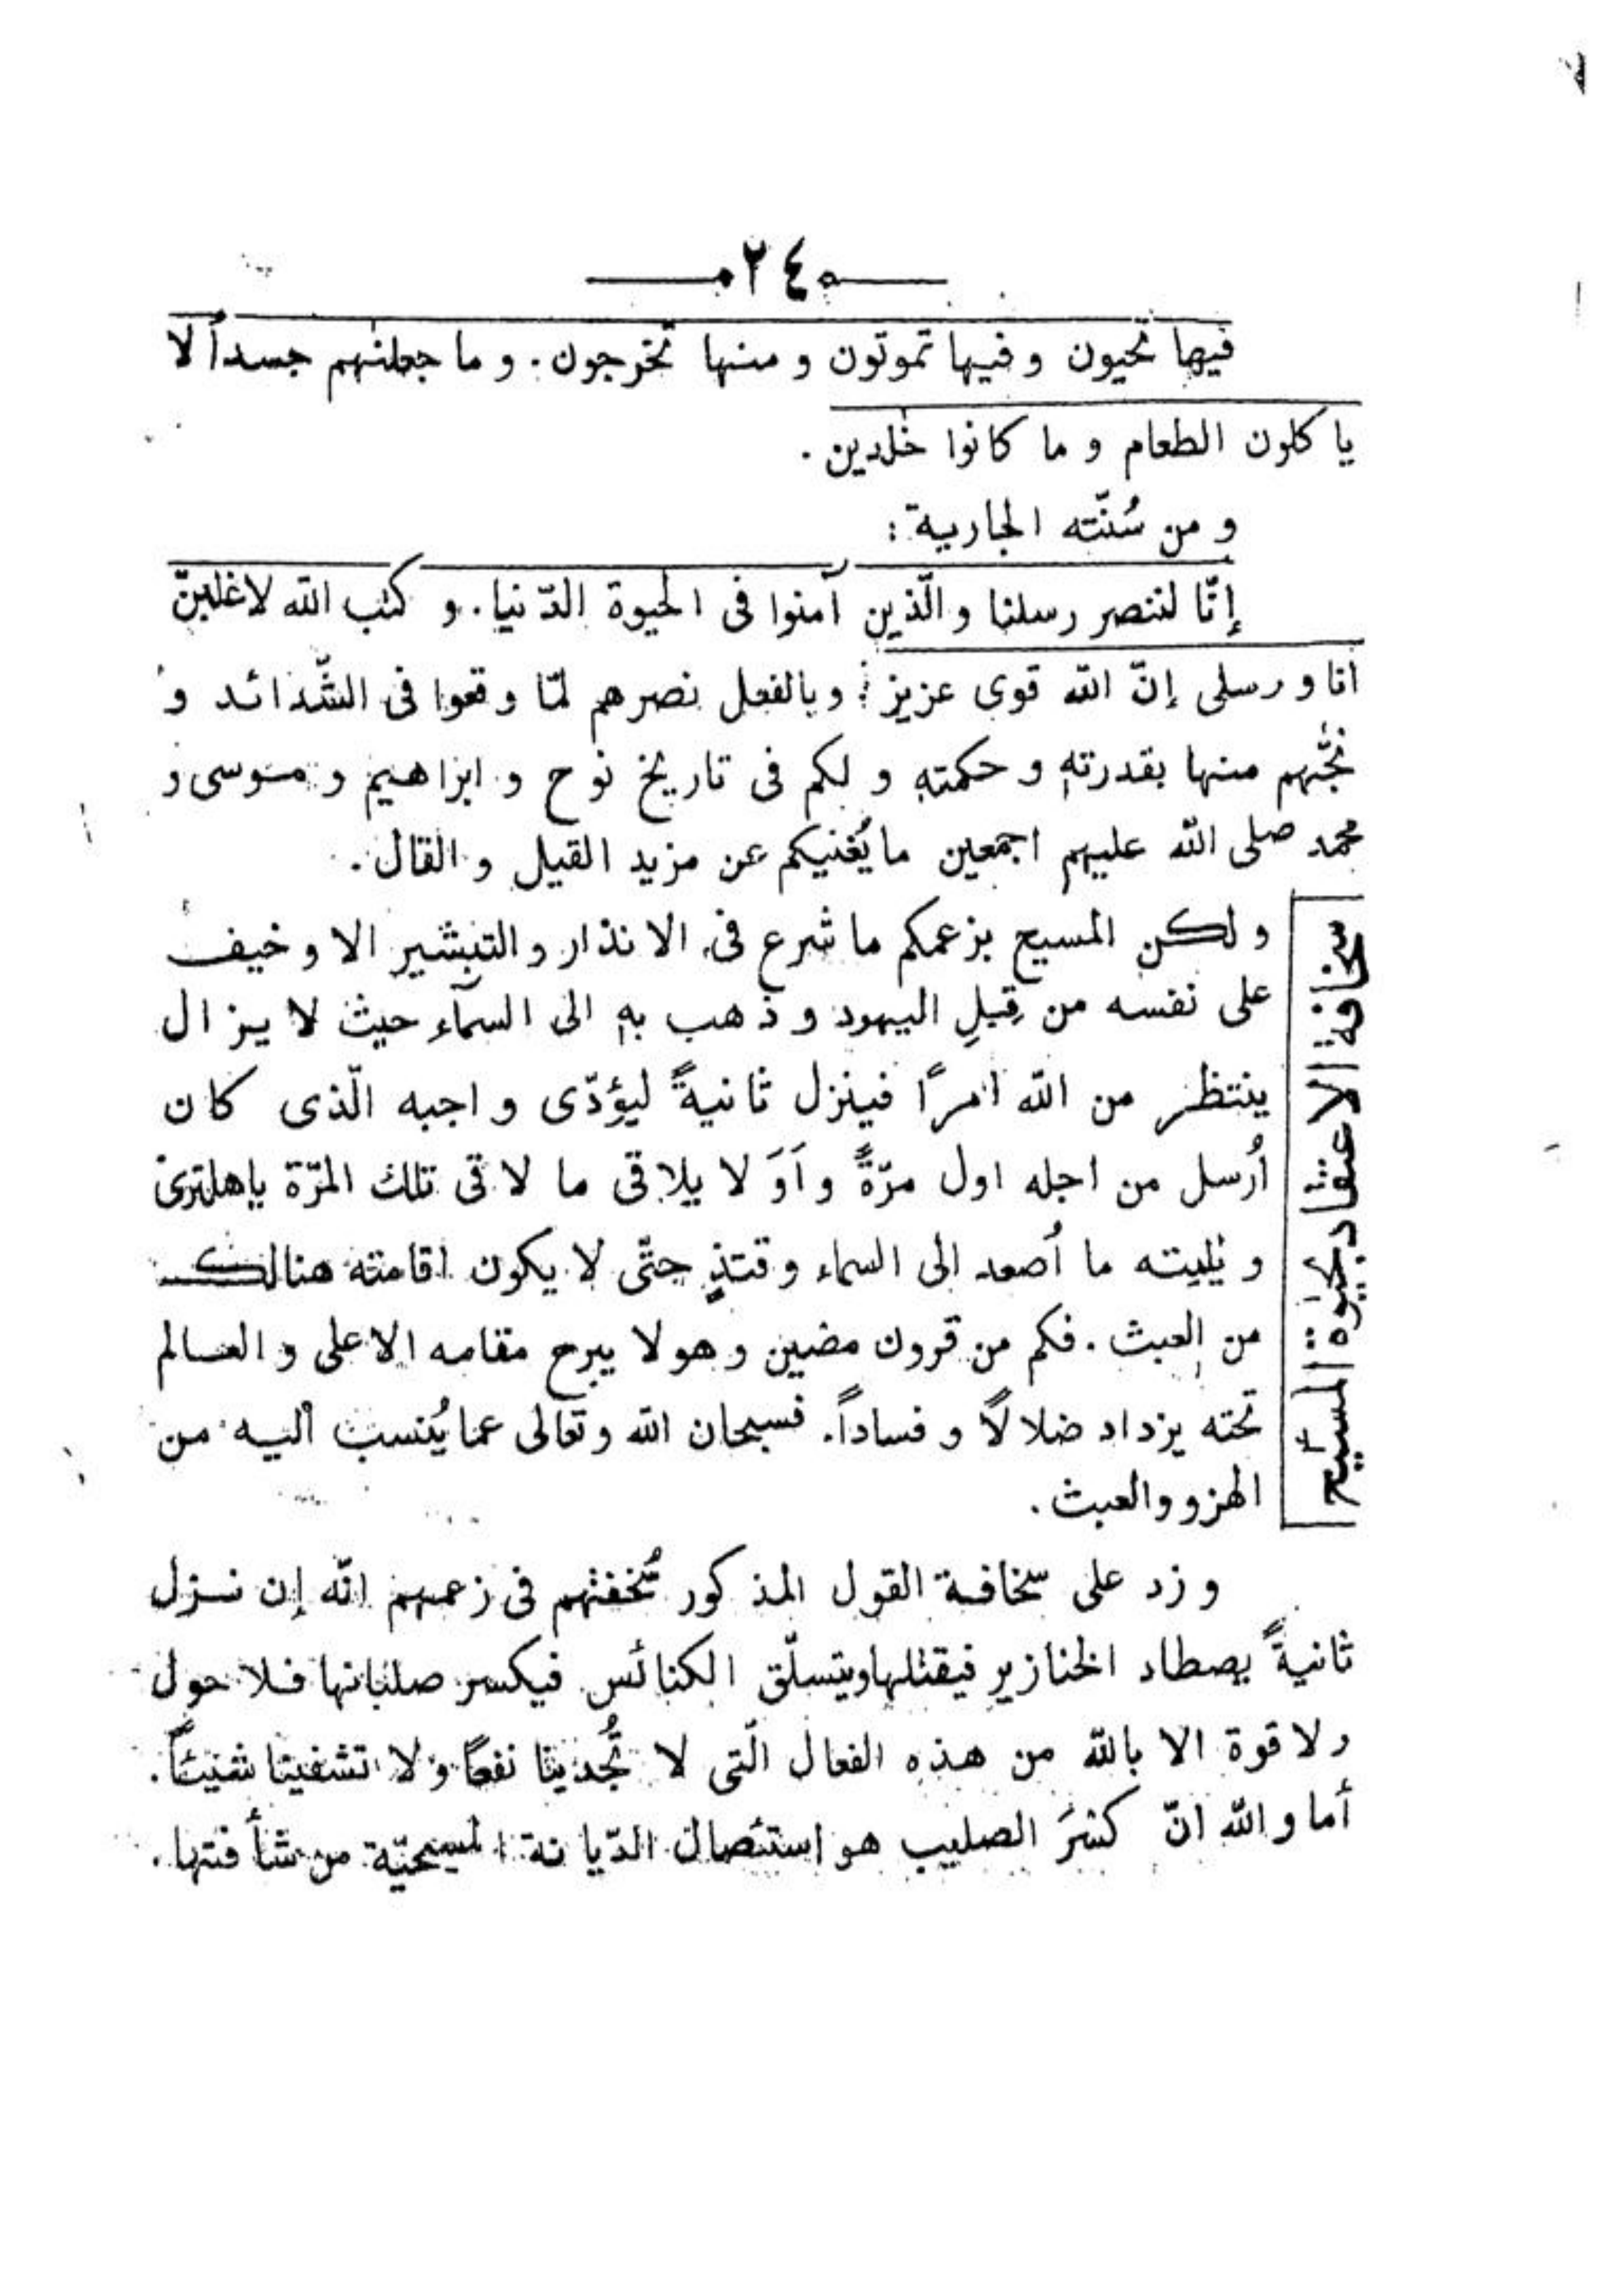 ٢٤
فيها تحيون و فيها تموتون و منها تخرجون. و ما جعلنٰهم جسداً لا
ياكلون الطعام و ما كانوا خٰلدين.
و من سُنّته الجارية:
إنّا لننصر رسلنا و الّذين آمنوا فى الحيوة الدّنيا. و كتب الله لاغلبنّ
انا و رسلى إنّ الله قوى عزيز: و بالفعل نصرهم لمّا وقعوا فى الشّدائد و
نجّٰهم منها بقدرتهٖ و حكمتهٖ و لكم فى تاريخ نوح و ابراهيم و موسى و
محمد صلى الله عليهم اجمعين ما يُغنيكم عن مزيد القيل و القال.
سخافة الاعتقاد بحيوة المسيح
و لكن المسيح بزعمكم ما شرع فى الانذار و التبشير الا و خيف
على نفسه من قِبلِ اليهود و ذهب بهٖ الى السمآء حيث لا يزال
ينتظر من الله امرًا فينزل ثانيةً ليؤدّى واجبه الّذى كان
اُرسل من اجله اول مرّةً و اَوَ لا يلاقى ما لاقى تلك المرّة ياهلترىٰ
و يٰليته ما اُصعد الى السماء وقتئذٍ حتّى لا يكون اقامته هنالك
من العبث. فكم من قرون مضين و هو لا يبرح مقامه الاعلى و العالم
تحته يزداد ضلالًا و فساداً. فسبحان الله و تعالى عما يُنسب اليه من
الهزو والعبث.
و زد على سخافة القول المذكور سُخفتهم فى زعمهم انّه إن نزل
ثانيةً يصطاد الخنازير فيقتلها و يتسلّق الكنائس فيكسر صلبانها فلا حول
و لا قوة الا بالله من هذه الفعال الّتى لا تُجدينا نفعًا و لا تشفينا شيئاً.
أما و الله انّ كسْرَ الصليب هو استئصال الدّيانة المسيحيّة من شأفتها.